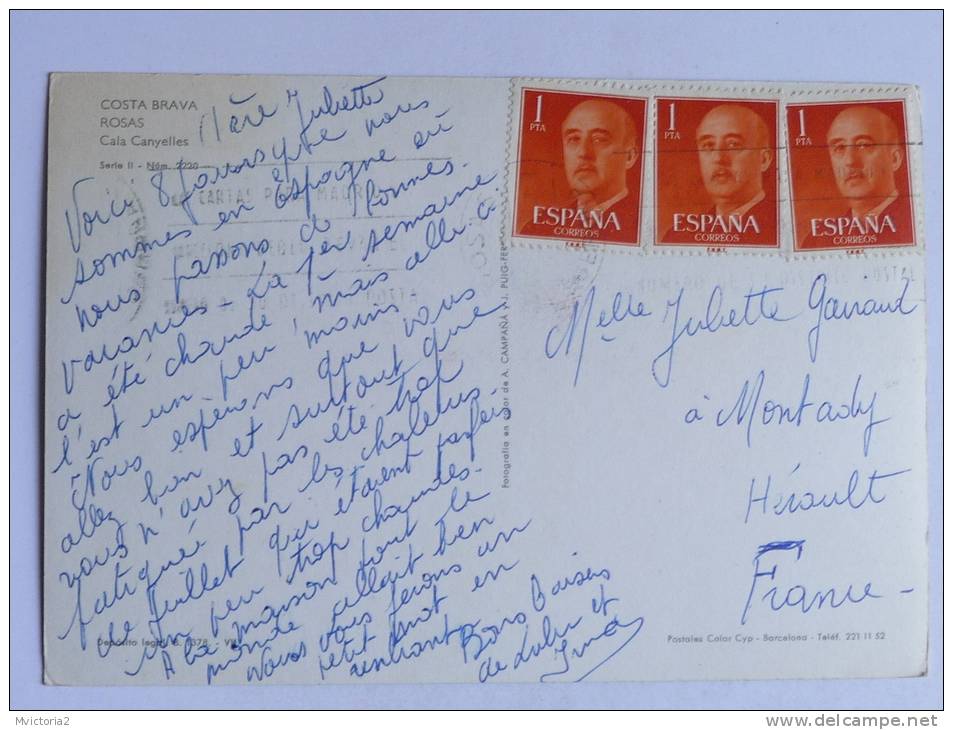 COSTA BRAVA
ROSAS
Cala Canyelles
Serie II - Núm. 2220
Juliette
Voici 8 jours que nous
sommes en Espagne où
nous passons de bonnes
vacances - La 1ère semaine
a été chaude, mais celle-ci
l'est un peu moins.
Nous espérons que vous
allez bien et surtout que
vous n'avez pas été trop
fatiguée par les chaleurs
de Juillet qui étaient parfois
un peu trop chaudes.
A la maison tout le
monde allait bien
Nous vous ferons un
petit mot en
rentrant.
Bons Baisers
de Lulu et
Depósito legal B. 1378 - VII
Fotografía en color de A. CAMPAÑÁ y J. PUIG-FERRÁN
1
PTA
ESPAÑA
CORREOS
1
PTA
ESPAÑA
CORREOS
1
PTA
ESPAÑA
CORREOS
Melle Juliette
à Montady
Hérault
France -
Postales Color Cyp - Barcelona - Teléf. 221 11 52
Mvictoria2
http://www.delcampe.net